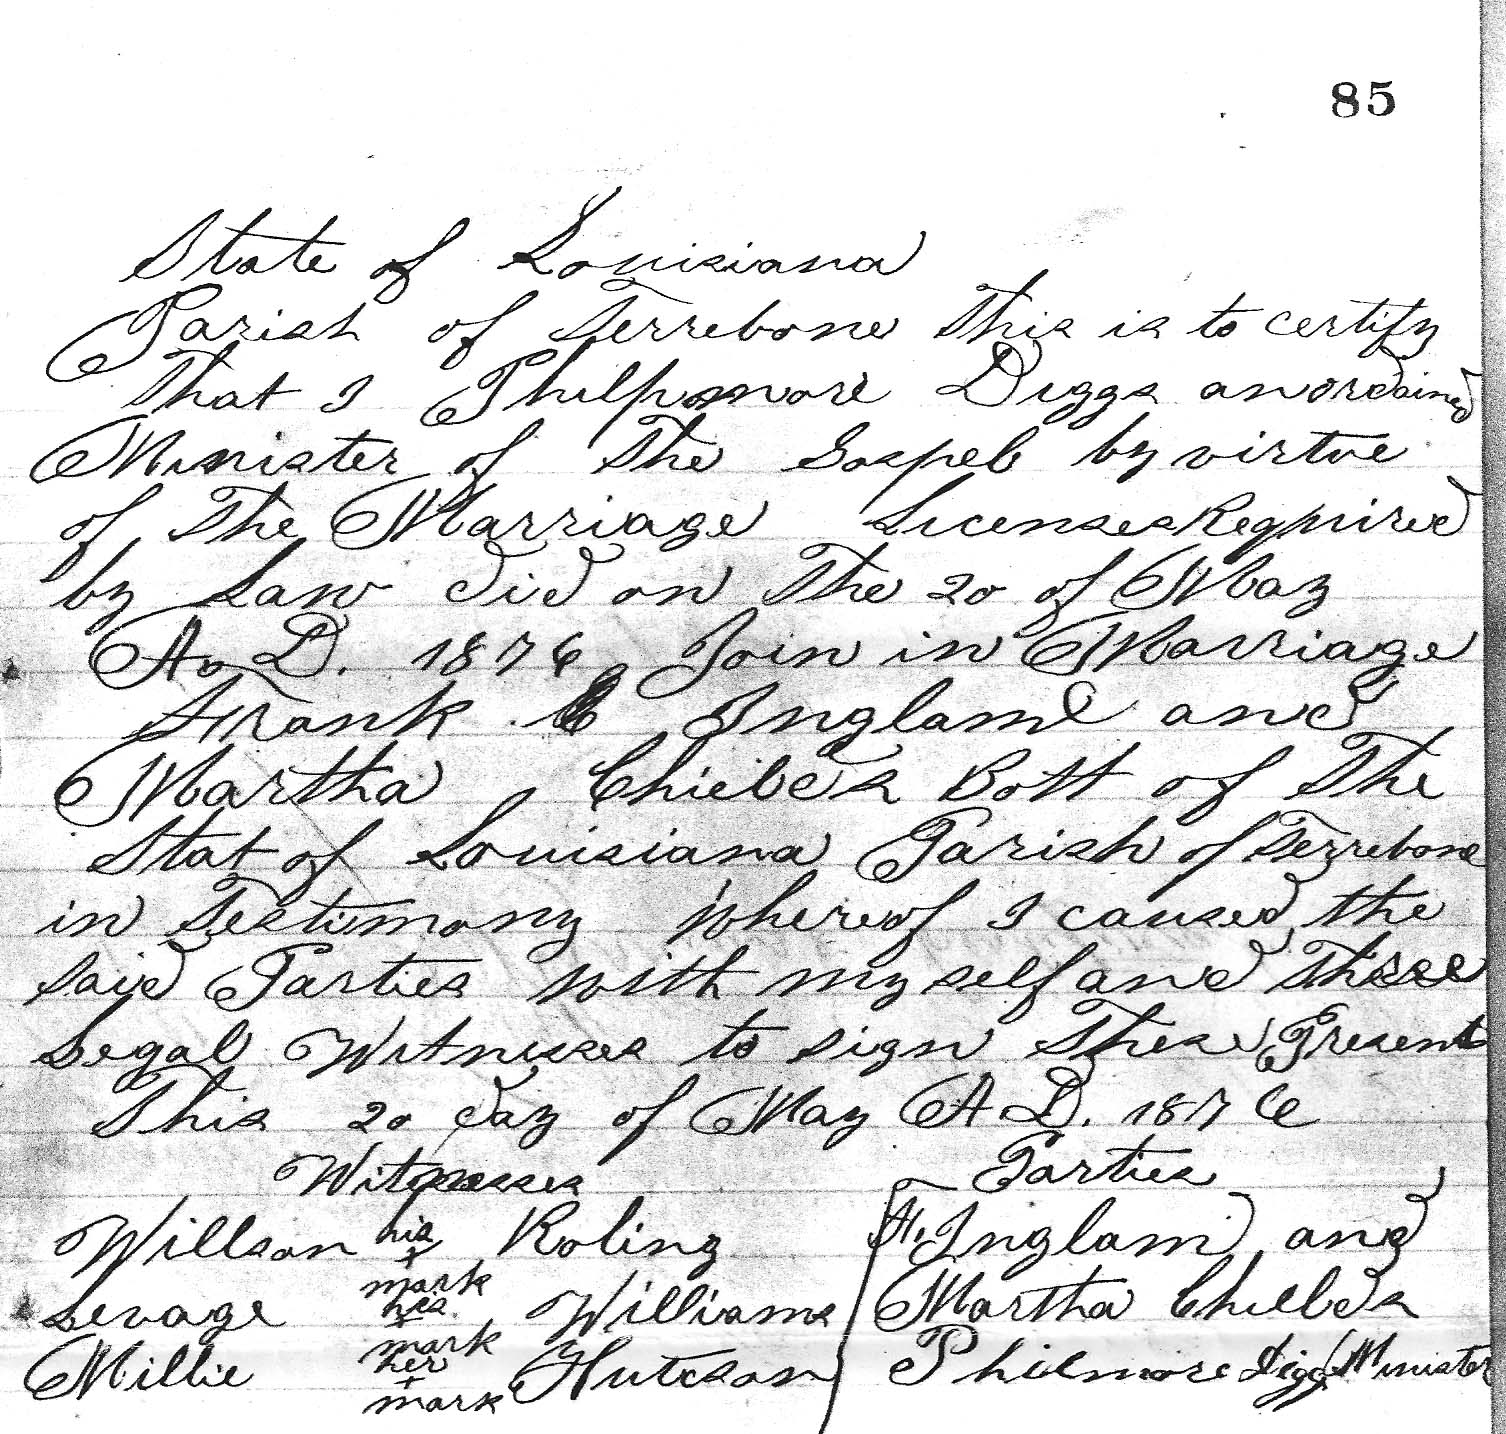 85
State of Louisiana
Parish of Terrebone This is to certify
That I Philpmore Diggs an ordained
Minister of The Gospel by virtue
of The Marriage Licenses Required
by Law did on The 20 of May
A. D. 1876 Join in Marriage
Frank Inglam and
Martha Chields Bott of The
Stat of Louisiana Parish of Terrebone
in Testimony whereof I caused the
said Parties with my self and Three
Legal Witnesses to sign These Present
This 20 day of May A D. 1876
Witnesses Parties
Willson his x mark Roling F. Inglam and
Levage his x mark Williams Martha Chelds
Millie her x mark Hutcson Philmore Digg Minister